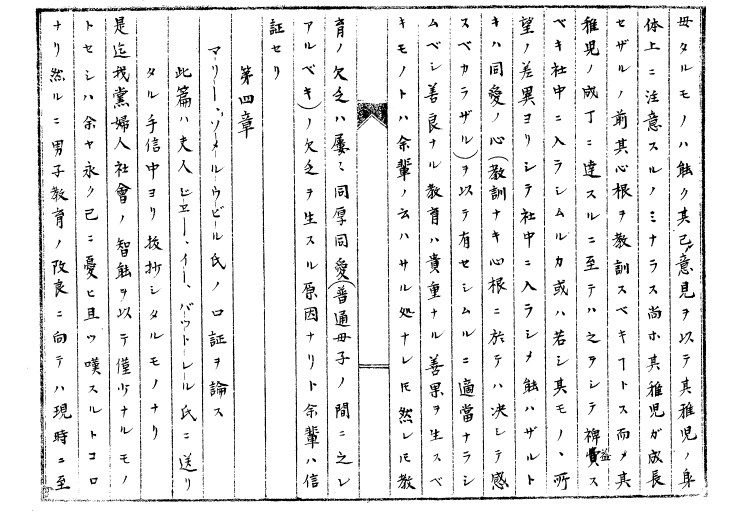 母タルモノハ能ク其己ノ意見ヲ以テ其稚児ノ身
体上ニ注意スルノミナラス尚ホ其稚児ガ成長
セザルノ前其心根ヲ教訓スベキヿトス而〆其
稚児ノ成丁ニ達スルニ至テハ之ヲシテ裨益ス
ベキ社中ニ入ラシムルカ或ハ若シ其モノヽ所
望ノ差異ヨリシテ社中ニ入ラシメ能ハザルト
キハ同愛ノ心(教訓ナキ心根ニ於テハ决シテ感
スベカラザル)ヲ以テ有セシムルニ適當ナラシ
ムベシ善良ナル教育ハ貴重ナル善果ヲ生スベ
キモノトハ余輩ノ云ハサル処ナレ𪜈然レ𪜈教
育ノ欠乏ハ屡〻同厚同愛(普通母子ノ間ニ之レ
アルベキ)ノ欠乏ヲ生スル原因ナリト余輩ハ信
証セリ
第四章
マリー、ソメールウビール氏ノ口証ヲ論ス
此篇ハ夫人ピエー、イー、バウトーレル氏ニ送リ
タル手信中ヨリ抜抄シタルモノナリ
是迄我黨婦人社會ノ智能ヲ以テ僅少ナルモノ
トセシハ余ヤ永ク已ニ憂ヒ且ツ嘆スルトコロ
ナリ然ルニ男子教育ノ改良ニ向テハ現時ニ至